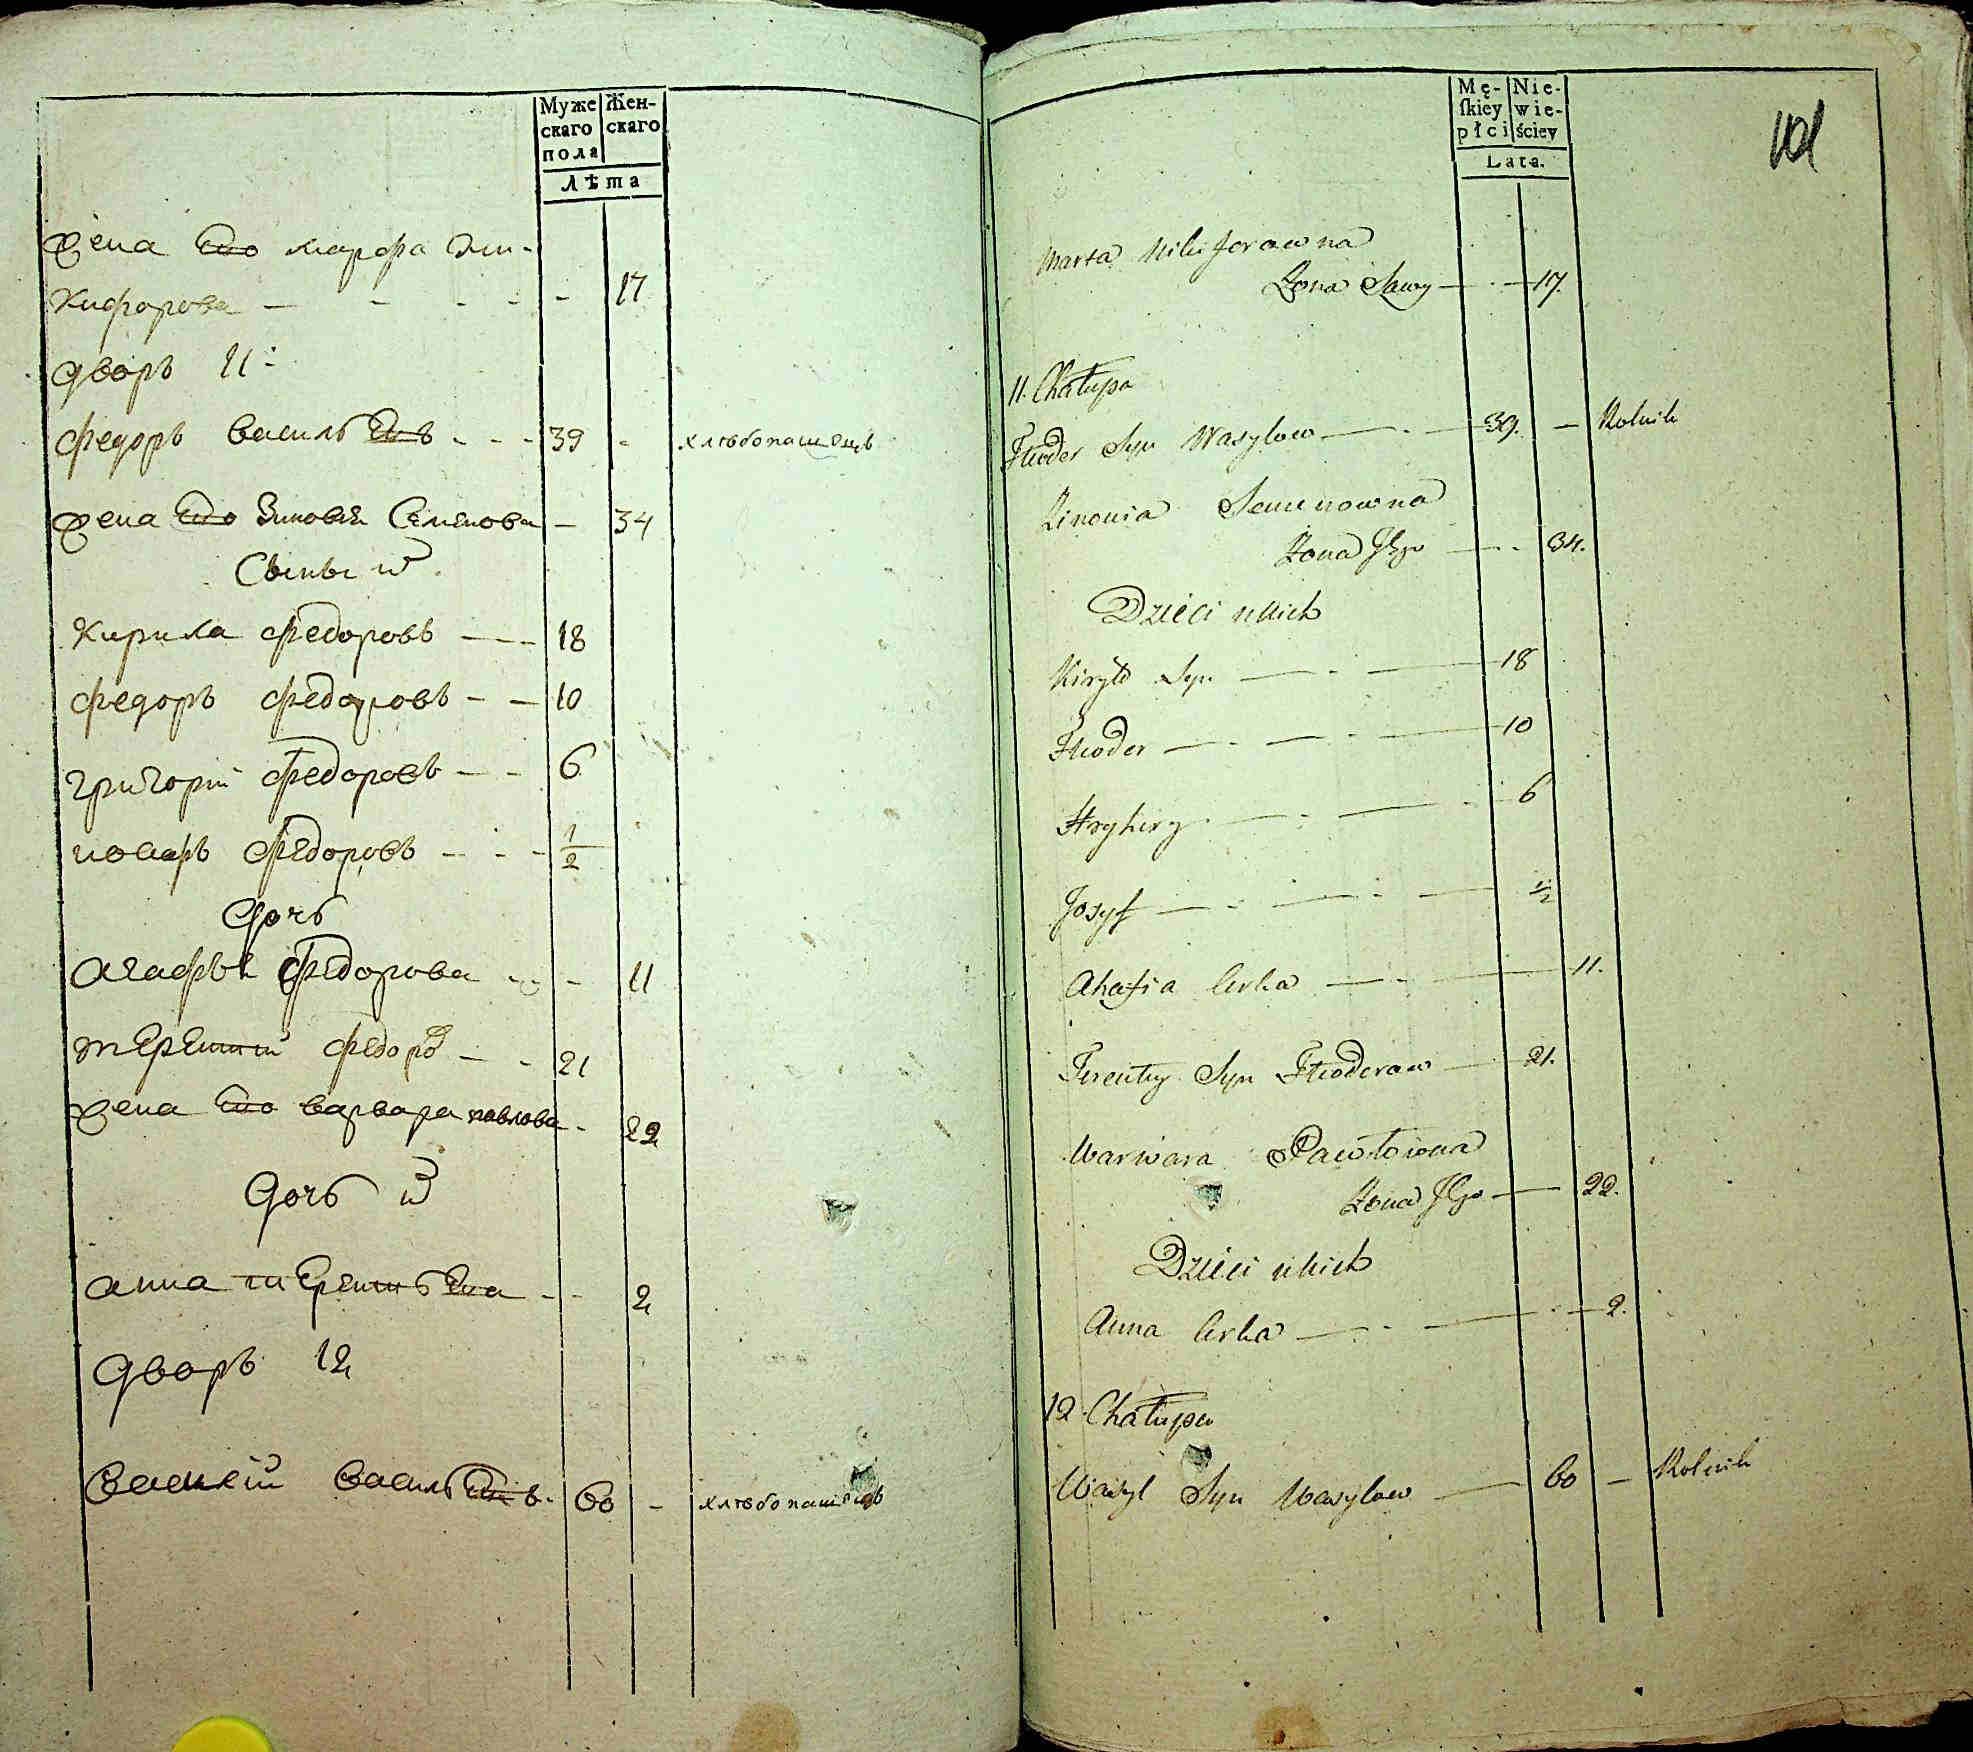 Муже
скаго
пола
Жен-
скаго
Лѣта
Жена Его марфа Ни-
кифорова — - - - - 17
дворъ 11
федоръ василь Евъ - - - 39 - хлѣбопашецъ
Жена Его Зиновѣя Семенова — 34
Сыны и͠
Кирила федоровъ — — 18
федоръ федоровъ - — 10
григорій федоровъ — - 6
иосифъ федоровъ - - - 1/2
дочь
агафья федорова - - - 11
терентій федоро͠в — - 21
Жена Его варвара павлова - 22
дочь и͠
анна терентьева - - - 2
дворъ 12
василій васильЕвъ - 60 - хлѣбопашецъ
Mę-
ſkiey
płci
Nie-
wie-
ściey
Lata.
101
Marta Nikiforowna
Żona Sawy — - — 17.
11. Chałupa
Fteoder Syn Wasylow — - — 39. — Rolnik
Zinowia Semenowna
Żona Jego — - 34.
Dzieci u Nich
Kiryło Syn — - — 18
Fteoder — - — - — 10
Hryhiry - — - — - 6
Josyf — - — - — 1/2
Ahafia Crka — - — 11.
Terenty Syn Fteoderow — 21.
Warwara Pawłowna
Żona Jego — 22.
Dzieci u Nich
Anna Crka — - — - — 2.
12. Chałupa
Wasyl Syn Wasylow — 60 — Rolnik